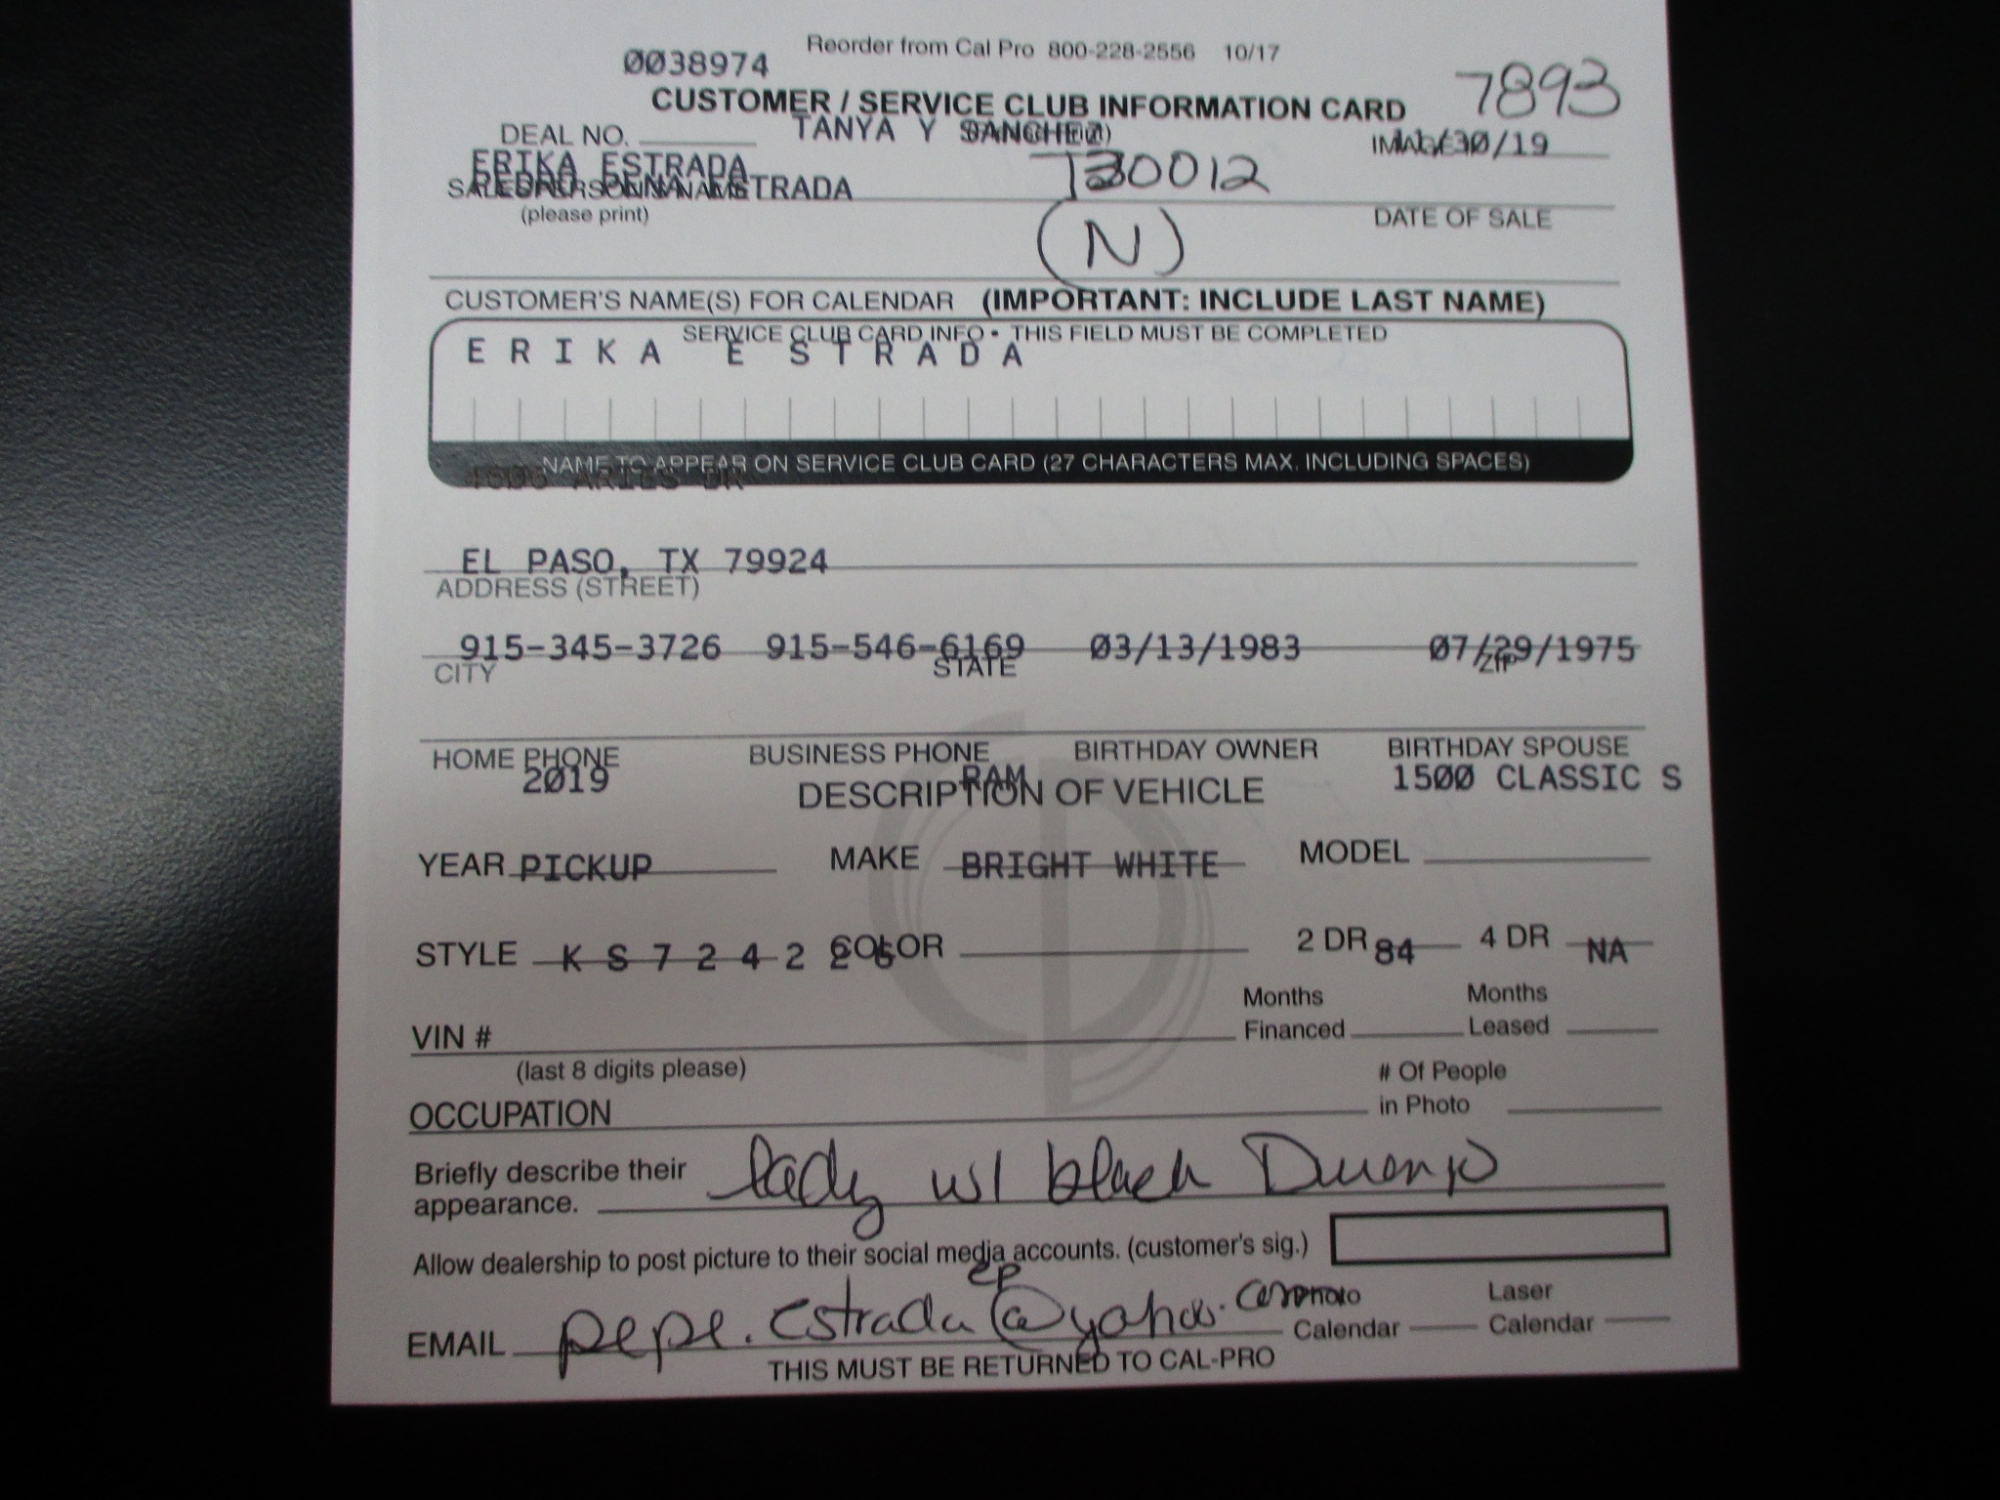 Reorder from Cal Pro 800-228-2556 10/17
0038974
7893
CUSTOMER / SERVICE CLUB INFORMATION CARD
DEAL NO. TANYA Y SANCHEZ
/30/19
ERIKA ESTRADA
T30012
PEDRO PENA ESTRADA
SALESPERSON'S NAME
(please print)
DATE OF SALE
(N)
CUSTOMER'S NAME(S) FOR CALENDAR (IMPORTANT: INCLUDE LAST NAME)
SERVICE CLUB CARD INFO • THIS FIELD MUST BE COMPLETED
ERIKA ESTRADA
NAME TO APPEAR ON SERVICE CLUB CARD (27 CHARACTERS MAX. INCLUDING SPACES)
ARIES DR
EL PASO, TX 79924
ADDRESS (STREET)
915-345-3726 915-546-6169 03/13/1983 07/29/1975
CITY STATE ZIP
HOME PHONE BUSINESS PHONE BIRTHDAY OWNER BIRTHDAY SPOUSE
2019 RAM 1500 CLASSIC S
DESCRIPTION OF VEHICLE
YEAR PICKUP MAKE BRIGHT WHITE MODEL
STYLE K S 7 2 4 2 2 COLOR 2 DR 84 4 DR NA
Months Financed Months Leased
VIN #
(last 8 digits please)
# Of People in Photo
OCCUPATION
Briefly describe their appearance. lady w/ black
Allow dealership to post picture to their social media accounts. (customer's sig.)
EMAIL pepe.estradaep@yahoo.com
Photo Calendar Laser Calendar
THIS MUST BE RETURNED TO CAL-PRO